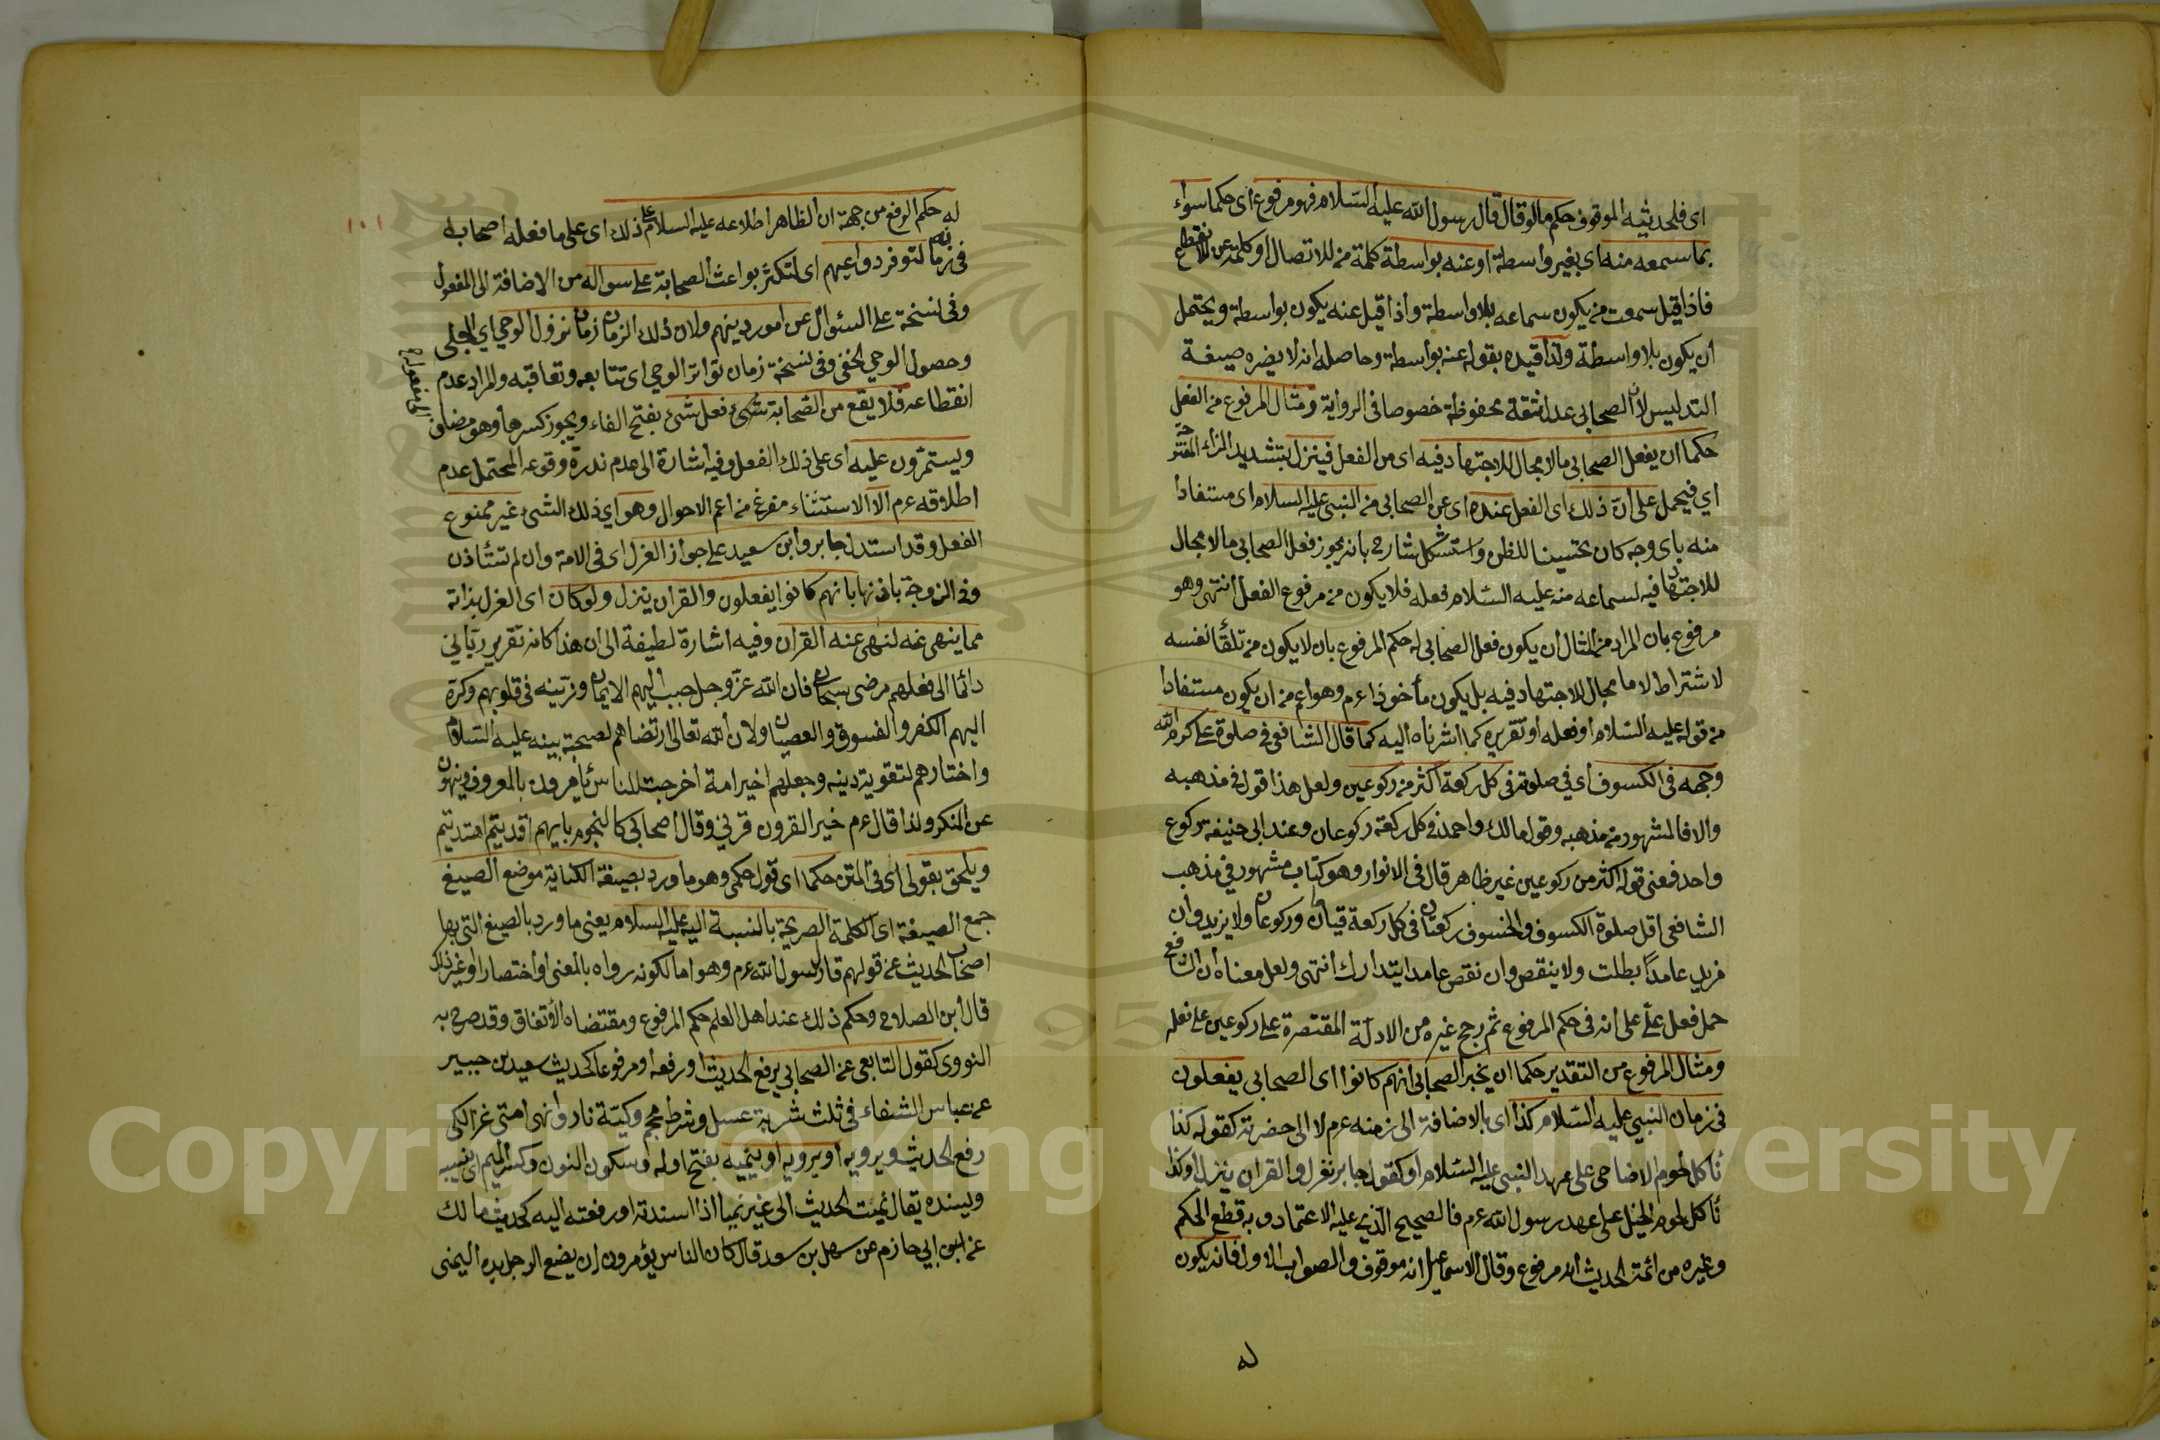 اى فلحديثه الموقوف حكم ما لو قال قال رسول الله عليه السلام فهو مرفوع اى حكما سواء
بما سمعه منه اى بغير واسطة او عنه بواسطة كلمة من للاتصال او كلمة عن للانقطاع
فاذا قيل سمعت من يكون سماعه بلا واسطة واذا قيل عنه يكون بواسطة ويحتمل
ان يكون بلا واسطة ولذا قيده بقوله عنه بواسطة وحاصله انه لا يضره صيغة
التدليس لان الصحابى عدل ثقة محفوظة خصوصا فى الرواية ومثال المرفوع من الفعل
حكما ان يفعل الصحابى ما لا مجال للاجتهاد فيه اى من الفعل فينزل بتشديد الزاء
اي فيحمل على ان ذلك اى الفعل عنده اى عن الصحابى من النبى عليه السلام اى مستفادا
منه باى وجه كان تحسينا للظن واستشكل شارح بانه يجوز فعل الصحابى ما لا مجال
للاجتهاد فيه لسماعه منه عليه السلام فعله فلا يكون من مرفوع الفعل انتهى وهو
مرفوع بان المراد من المثال ان يكون فعل الصحابى له حكم المرفوع بان لا يكون من تلقأ نفسه
لاشتراط لا ما مجال للاجتهاد فيه بل يكون مأخوذا عم وهو اعم من ان يكون مستفادا
من قوله عليه السلام او فعله او تقريره كما اشرناه اليه كما قال الشافعى فى صلوة على كرم الله
وجهه فى الكسوف اي في صلوته فى كل ركعة اكثر من ركوعين ولعل هذا قول فى مذهبه
والا فالمشهور من مذهبه وقول مالك واحمد فى كل ركعة ركوعان وعند ابى حنيفة ركوع
واحد فمعنى قوله اكثر من ركوعين غير ظاهر قال فى الانوار وهو كتاب مشهور في مذهب
الشافعى اقل صلوة الكسوف والخسوف ركعتان فى كل ركعة قيامان وركوعان ولا يزيد وان
فزيد عامداً بطلت ولا ينقص وان نقص عامدا يتدارك انتهى ولعل معناه ان الشافعى
حمل فعل علّى على انه فى حكم المرفوع ثم رجح غيره من الادلة المقتصرة على ركوعين على فعله
ومثال المرفوع من التقدير حكما ان يخبر الصحابى انهم كانوا اى الصحابى يفعلون
فى زمان النبى عليه السلام كذا اى بالاضافة الى زمنه عم لا الى حضرته كقوله كنا
نأكل لحوم الاضاحى على عهد النبى عليه السلام او كقول جابر نعزل والقران ينزل او كنا
نأكل لحوم الخيل على عهد رسول الله عم فالصحيح الذي عليه الاعتماد وبه قطع الحكم
وغيره من ائمة الحديث انه مرفوع وقال الاسماعيلى انه موقوف والصواب الاول فانه يكون
له
١٠١
له حكم الرفع من جهة ان الظاهر اطلاعه عليه السلام على ذلك اى على ما فعله اصحابه
فى زمانه لتوفر دواعيهم اى لتكثر بواعث الصحابة على سواله من الاضافة الى المفعول
وفى نسخة على السئوال عن امور دينهم ولان ذلك الزمان زمان نزول الوحي اي الجلى
وحصول الوحي الخفى وفى نسخة زمان تواتر الوحي اى تتابعه وتعاقبه والمراد عدم
انقطاعه فلا يقع من الصحابة شئ فعل شئ بفتح الفاء ويجوز كسرها وهو مضاف
الى مفعوله
ويستمرون عليه اى على ذلك الفعل وفيه اشارة الى عدم ندرة وقوعه المحتمل عدم
اطلاقه عم الا الاستثناء مفرغ من اعم الاحوال وهو اي ذلك الشئ غير ممنوع
الفعل وقد استدل جابر وابن سعيد على جواز العزل اى فى الامة وان لم تستأذن
وفى الزوجة باذنها بانهم كانوا يفعلون والقران ينزل ولو كان اى العزل بذاته
مما ينهى عنه لنهى عنه القران وفيه اشارة لطيفة الى ان هذا كانه تقرير ربّاني
دائما الى فعلهم مرضى سبحانه فان الله عزّ وجل حبب اليهم الايمان وزيّنه فى قلوبهم وكرّه
اليهم الكفر والفسوق والعصيان ولان الله تعالى ارتضاهم لصحبة نبيه عليه السلام
واختارهم لتقوية دينه وجعلهم اخير امة اخرجت للناس يأمرون بالمعروف وينهون
عن المنكر ولذا قال عم خير القرون قرني وقال اصحابى كالنجوم بايهم اقديتم اهتديتم
ويلحق بقولى اى فى المتن حكما اى قول حكمى وهو ما ورد بصيغة الكناية موضع الصيغ
جمع الصيغة اى الكلمة الصريحة بالنسبة اليه عليه السلام يعنى ما ورد بالصيغ التى بها
اصحاب الحديث عن قولهم قال رسول الله عم وهو اما لكونه رواه بالمعنى او اختصارا او غير ذلك
قال ابن الصلاح وحكم ذلك عند اهل العلم حكم المرفوع ومقتضاه الأتفاق وقد صرح به
النووى كقول التابعى عن الصحابي يرفع الحديث او رفعه او مرفوعا كحديث سعيد بن جبير
عن عباس الشفاء فى ثلث شربة عسل وشرط محجم وكيّة نار وانهى امتى عن الكى
رفع الحديث ويرويه او يرويه او ينميه بفتح اوله وسكون النون وكسر الميم اى ينسبه
ويسنده يقال نميت الحديث الى غيرى نميا اذا اسندته او رفعته اليه كحديث مالك
عن ابى حازم عن سهل بن سعد قال كان الناس يؤمرون ان يضع الرجل يده اليمنى
Copyright © King Saud University